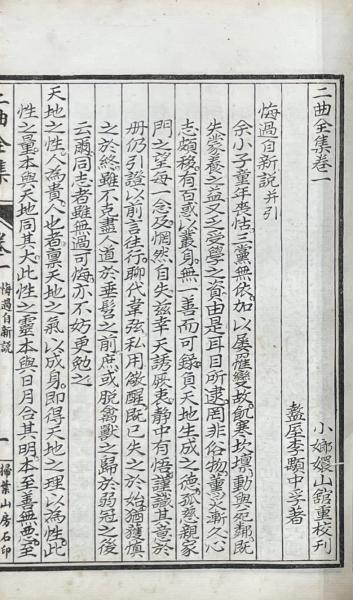 二曲全集卷一
小嫏嬛山館重校刊
盩厔李顒中孚著
悔過自新說并引
余小子童年喪怙三黨無依加以屢罹變故飢寒坎壈動與死鄰既
失蒙養之益又乏受學之資由是耳目所逮罔非俗物薰炙漸久心
志頗移有百惡以叢身無一善而可錄負天地生成之德孤慈親家
門之望每一念及惘然自失茲幸天誘厥衷靜中有悟謹識其意於
冊仍引證以前言往行聊代韋弦私用儆醒既已失之於始猶獲慎
之於終雖不克盡人道於垂髫之前庶或脫禽獸之歸於弱冠之後
云爾同志者雖無過可悔亦不妨更勉之
天地之性人為貴人也者稟天地之氣以成身即得天地之理以為性此
性之量本與天地同其大此性之靈本與日月合其明本至善無惡至
二曲全集
卷一
悔過自新說
一
掃葉山房石印